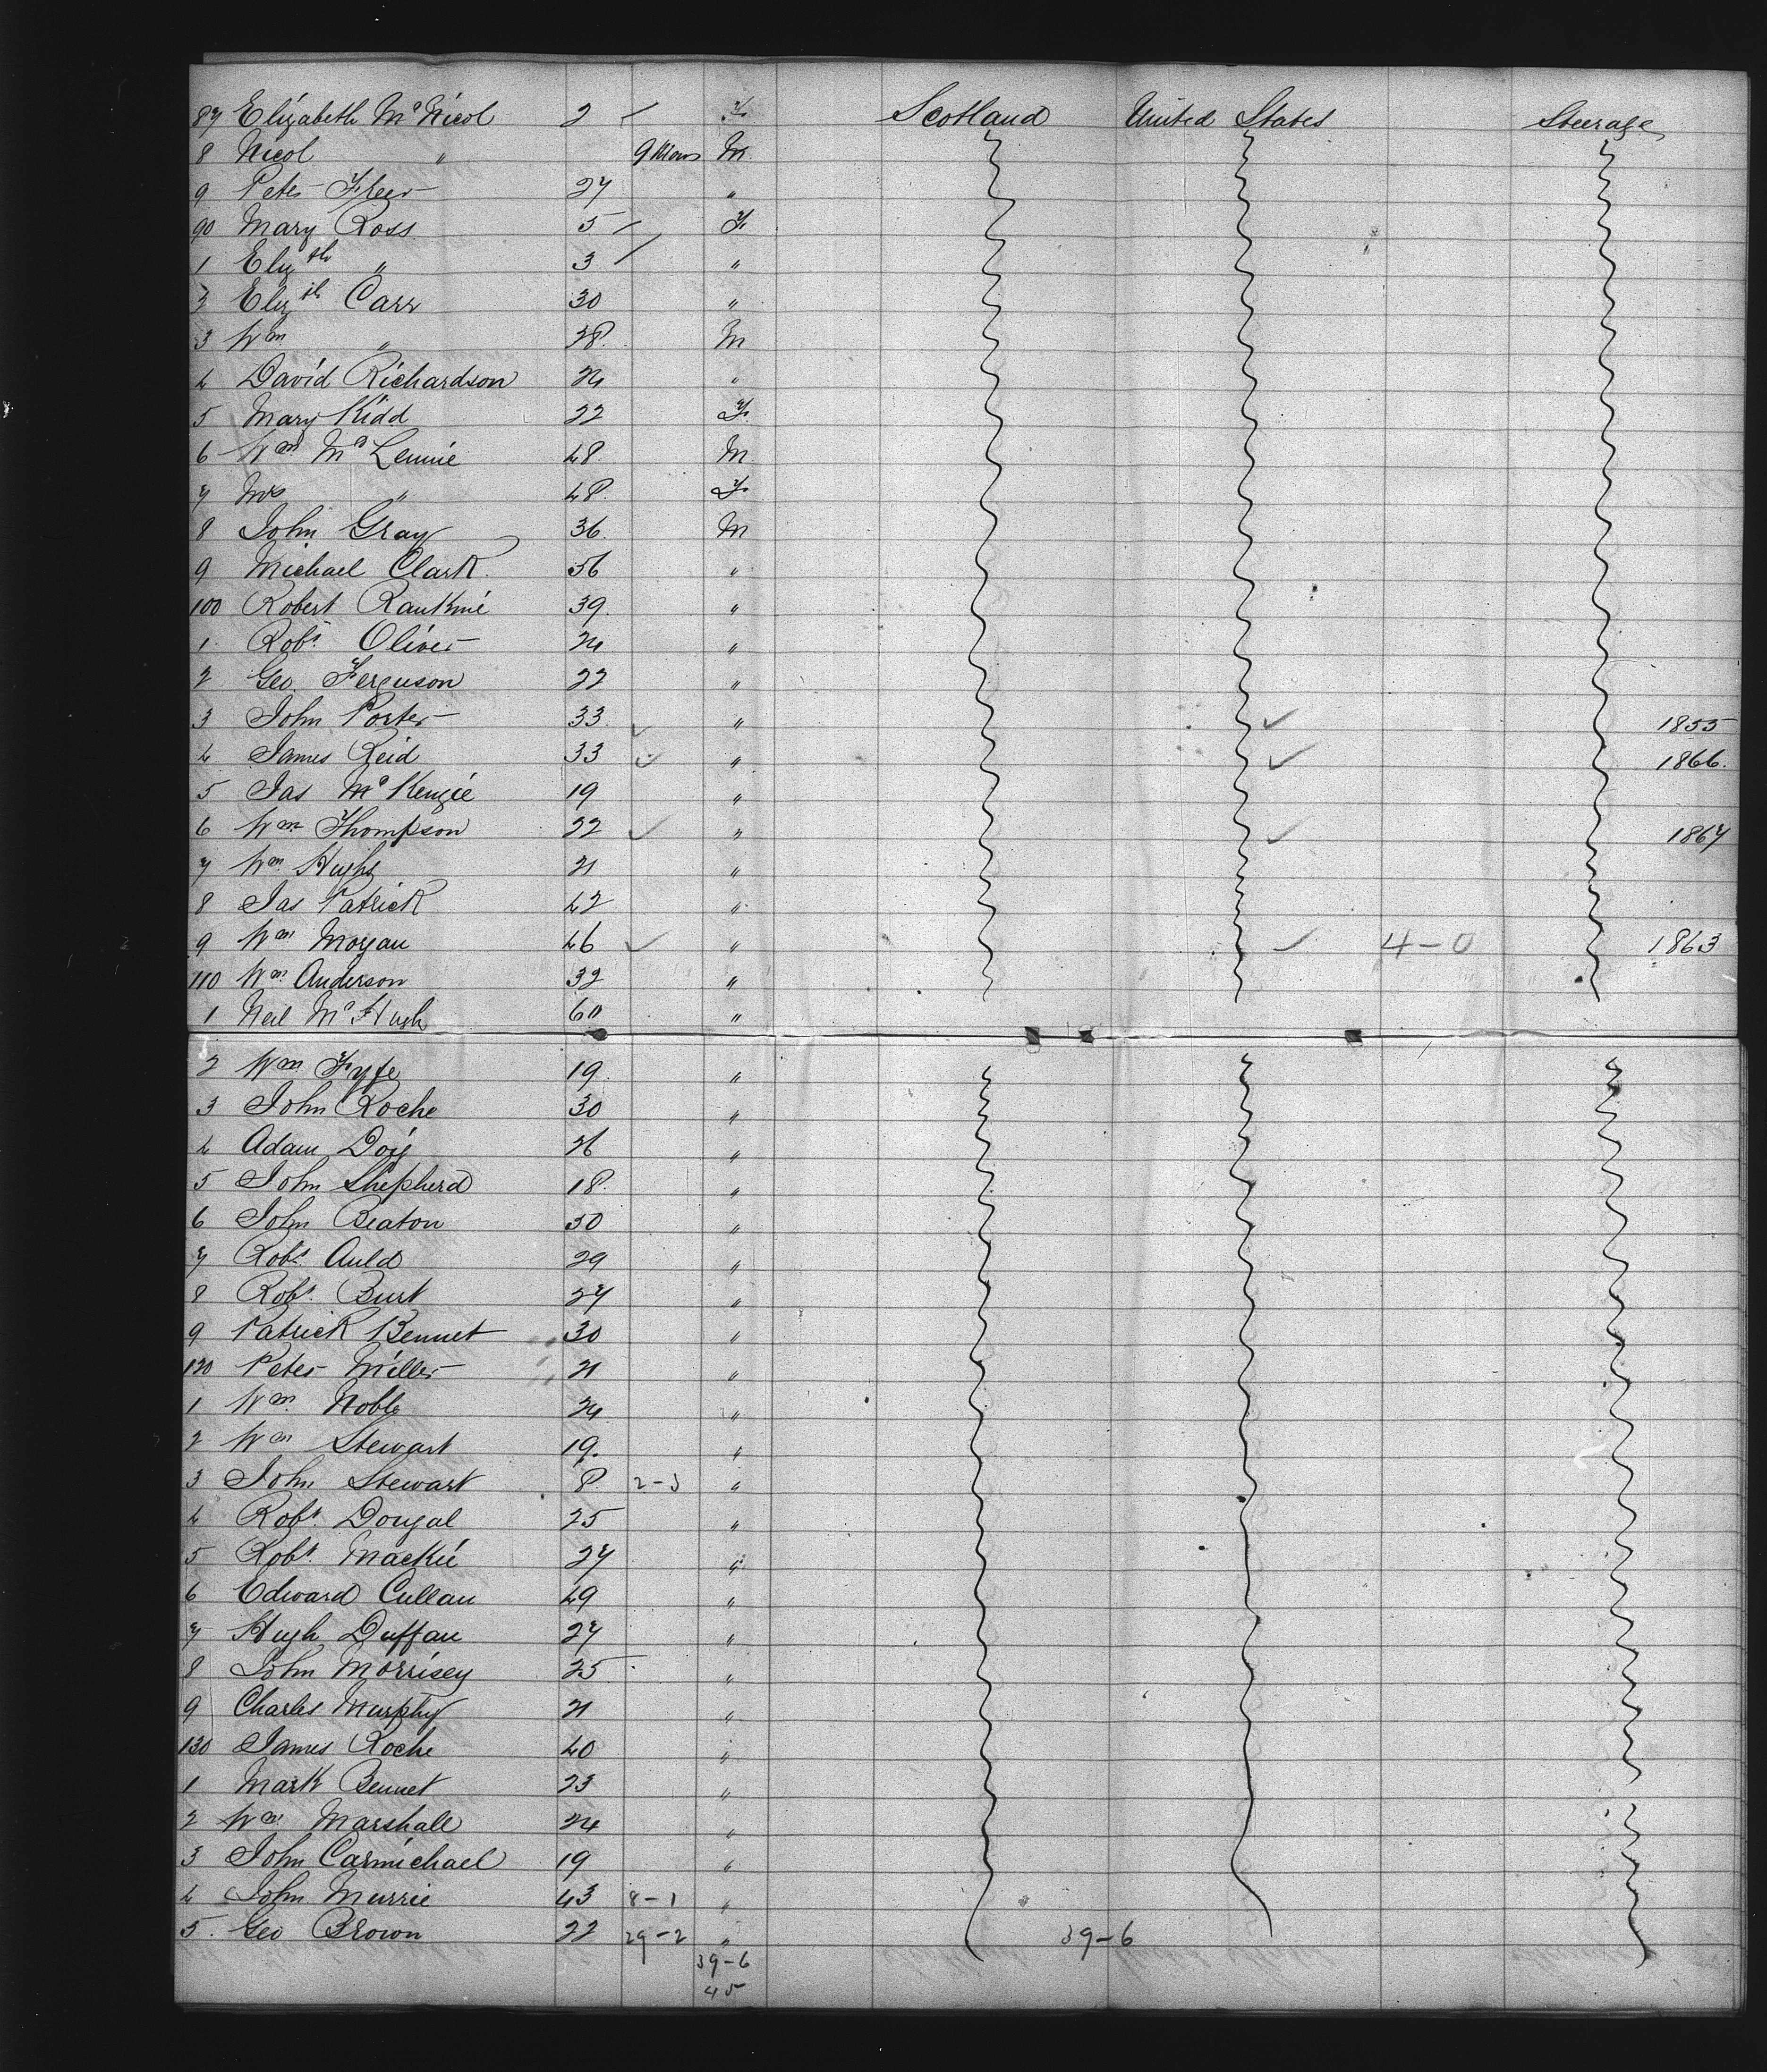 87 Elizabeth McNicol 2 F Scotland United States Steerage
8 Nicol " 9 Mons M
9 Peter Fleer 27 "
90 Mary Ross 5 F
1 Elizth " 3 "
2 Elizth Carr 30 "
3 Wm " 28 M
4 David Richardson 24 "
5 Mary Kidd 22 F
6 Wm McLennie 48 M
7 Mrs " 48 F
8 John Gray 36 M
9 Michael Clark 56 "
100 Robert Rankine 39 "
1 Robt Oliver 24 "
2 Geo Ferguson 22 "
3 John Porter 33 " 1855
4 James Reid 33 " 1866.
5 Jas McKenzie 19 "
6 Wm Thompson 22 " 1867
7 Wm Hughs 21 "
8 Jas Patrick 42 "
9 Wm Mogan 46 " 4-0 1863
110 Wm Anderson 32 "
1 Neil McHugh 60 "
2 Wm Fyfe 19 "
3 John Roche 30 "
4 Adam Doig 26 "
5 John Shepherd 18 "
6 John Beaton 50 "
7 Robt Auld 29 "
8 Robt Burt 27 "
9 Patrick Bennet 30 "
120 Peter Miller 21 "
1 Wm Noble 24 "
2 Wm Stewart 19 "
3 John Stewart 8 2-3 "
4 Robt Dougal 25 "
5 Robt Mackie 27 "
6 Edward Cullan 49 "
7 Hugh Duffan 27 "
8 John Morrisey 25 "
9 Charles Murphy 21 "
130 James Roche 40 "
1 Mark Bennet 23 "
2 Wm Marshall 24 "
3 John Carmichael 19 "
4 John Murrie 43 8-1 "
5 Geo Brown 22 29-2 " 39-6
39-6
45